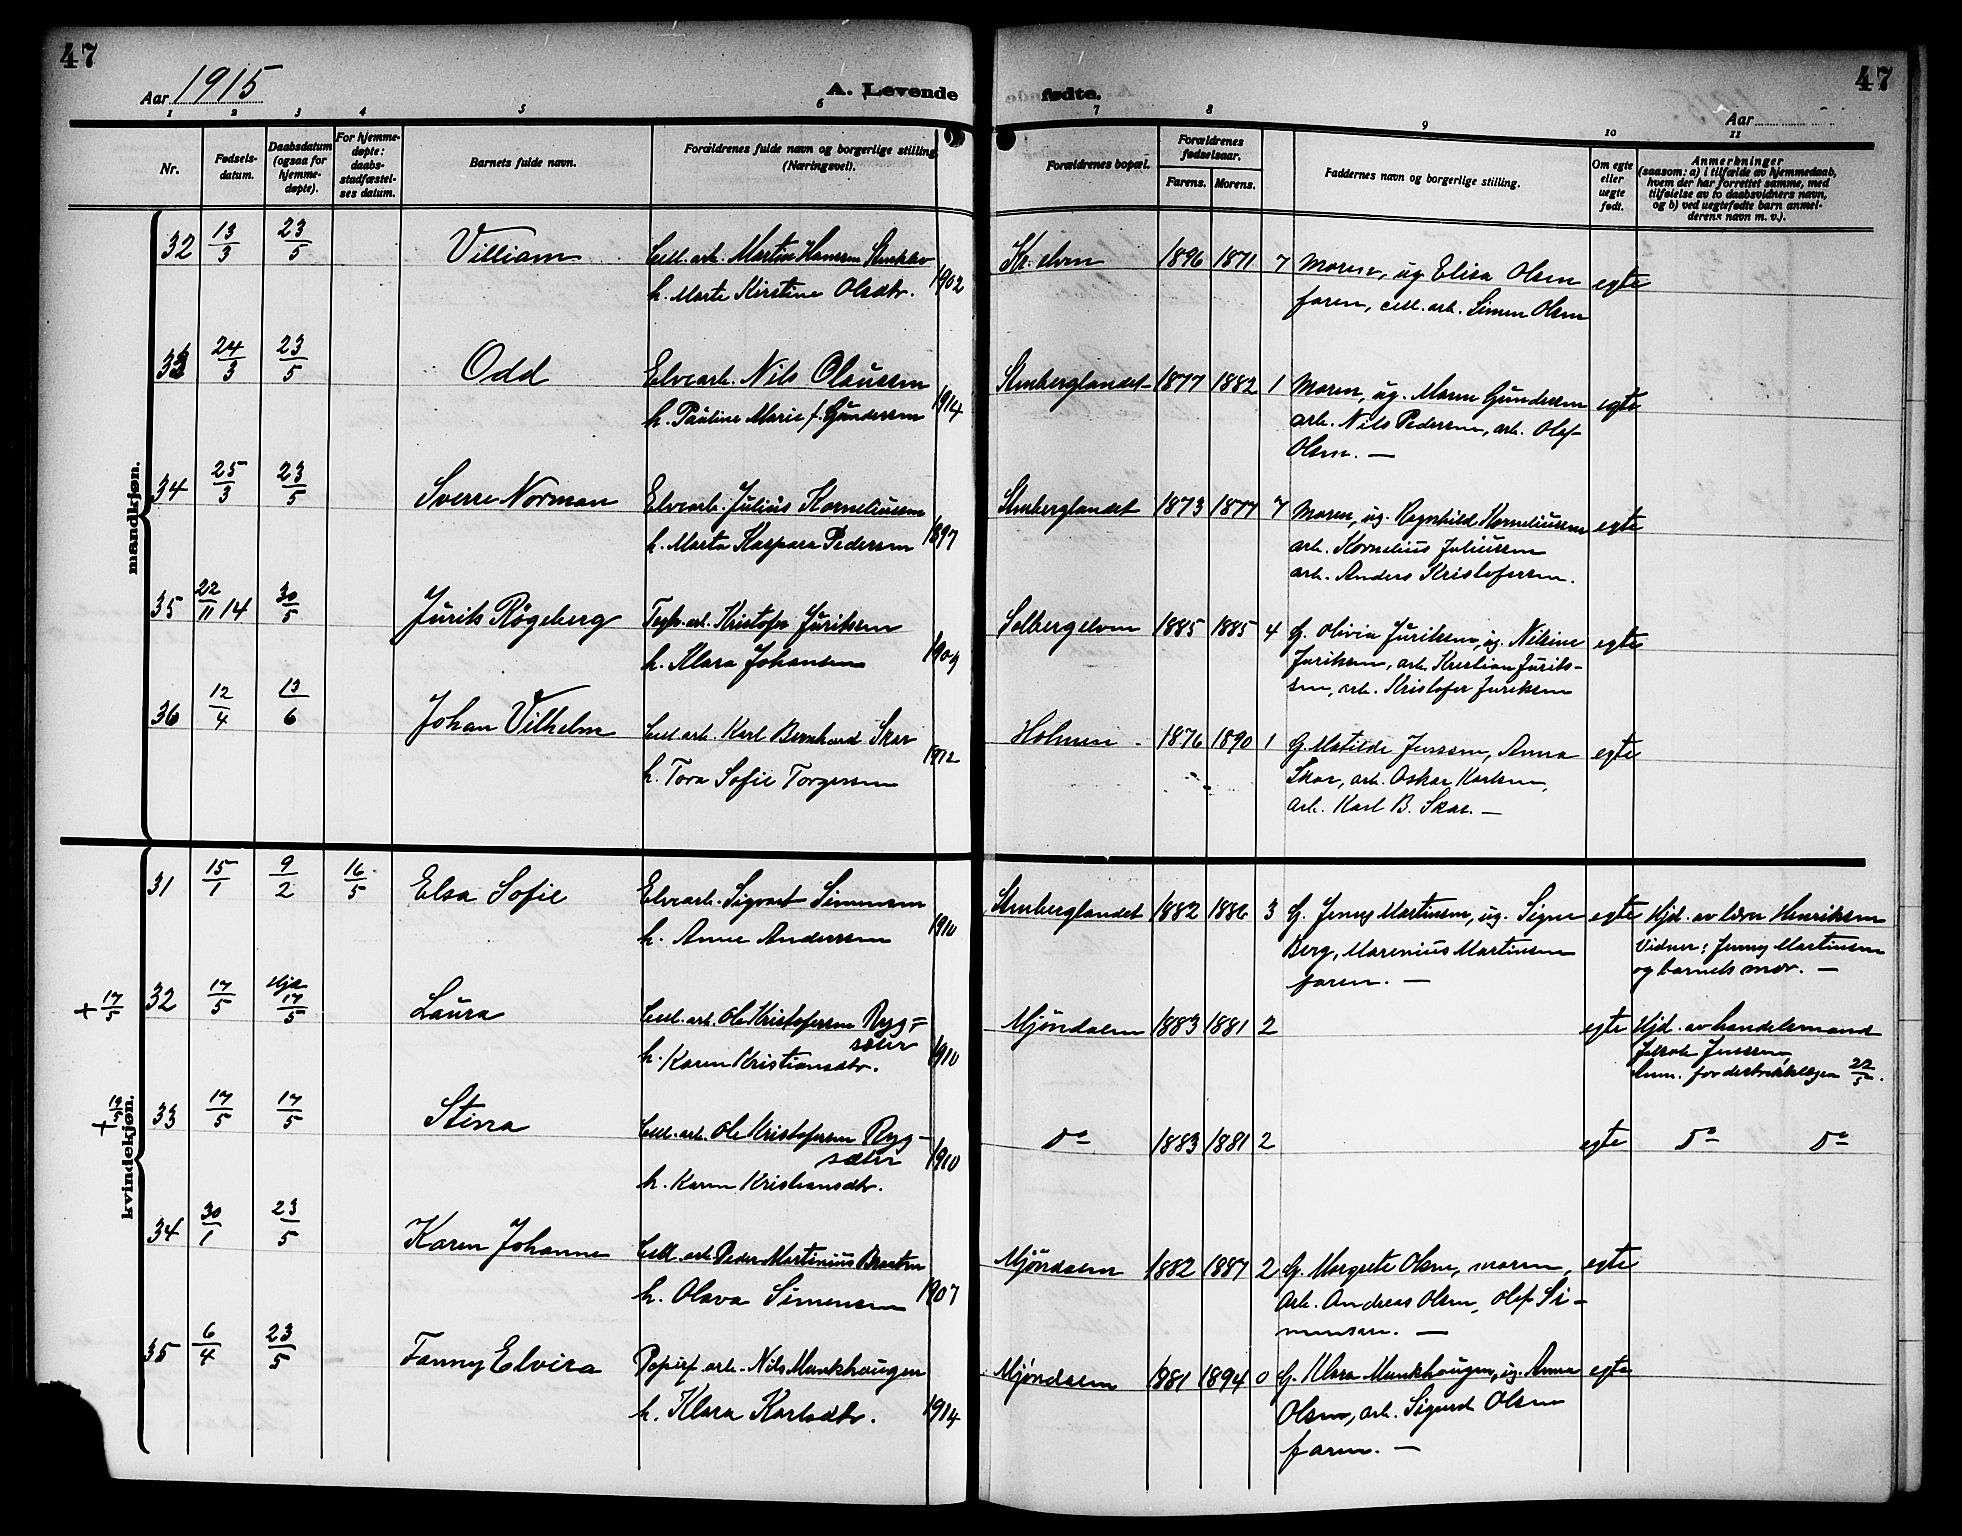 47
Aar 1915
A. Levende
1 2 3 4 5 6
Nr.
Fødsels-
datum.
Daabsdatum
(ogsaa for
hjemme-
døpte).
For hjemme-
døpte:
daabs-
stadfæstel-
ses datum.
Barnets fulde navn.
Forældrenes fulde navn og borgerlige stilling
(Næringsvei).
mandkjøn.
32 13/3 23/5 Villiam Cell. arb. Martin Hanssen
h. Marte Kirstine Olsdtr. 1902
33 24/3 23/5 Odd Elvearb. Nils Olaussen
h. Pauline Marie f. Gundersen 1914
34 25/3 23/5 Sverre Norman Elvearb. Julius Korneliussen
h. Marta Kaspara Pedersen 1897
35 22/11 14 30/5 Jurits Røgeberg Kristofer Juritsen
h. Klara Johansen 1909
36 12/4 13/6 Johan Vilhelm Cell arb. Karl Bernhard Skar
h. Tora Sofie Torgersen 1912
kvindekjøn.
31 15/1 9/2 16/5 Elsa Sofie Elvearb. Sigvart Simensen
h. Anne Anderssen 1910
+ 17/5 32 17/5 Hjd. 17/5 Laura Cell. arb. Ole Kristofersen Ryg=
sæter
h. Karen Kristiansdtr. 1910
+ 33 17/5 17/5 Stina Cell. arb. Ole Kristofersen Ryg-
sæter
h. Karen Kristiansdtr. 1910
34 30/1 23/5 Karen Johanne Cell. arb. Peder Martinius Braaten
h. Olava Simensen 1907
35 6/4 23/5 Fanny Elvira Papirf. arb. Nils Munkhaugen
h. Klara Karlsdtr. 1914
47
fødte.
Aar
7 8 9 10 11
Forældrenes bopæl.
Forældrenes
fødselsaar.
Farens. Morens.
Faddernes navn og borgerlige stilling.
Om egte
eller
uegte
født.
Anmerkninger
(saasom: a) i tilfælde av hjemmedaab,
hvem der har forrettet samme, med
tilføielse av to daabsvidners navn,
og b) ved uegtefødte barn anmel-
derens navn m. v.).
Kr. elven 1896 1871 7 Moren, ug Elisa Olsen egte
faren, cell. arb. Simen Olsen
Stenberglandet 1877 1882 1 Moren, ug. Maren Gundersen egte
arb. Nils Pedersen, arb. Olef
Olsen. —
Stenberglandet 1873 1877 7 Moren, ug. Ragnhild Korneliussen egte
arb. Kornelius Juliussen
arb. Anders Kristofersen.
Solbergelven 1885 1885 4 G. Olivia Juritsen, ug. Nilsine egte
Juritsen, arb. Kristian Jurit-
sen, arb. Kristofer Juritsen
Holmen - 1876 1890 1 G. Matilde Jenssen, Anna egte
Skar, arb. Oskar Karlsen,
arb. Karl B. Skar. —
Stenberglandet 1882 1886 3 G. Jenny Martinsen, ug. Signe egte Hjd. av lærer Henriksen
Berg, Marenius Martinsen Vidner: Jenny Martinsen
faren. — og barnets mor. —
Mjøndalen 1883 1881 2 egte Hjd. av handelsmand
Jakob Jenssen,
Anm. for distriktslægen 22/5.
Do 1883 1881 2 egte Do Do
Mjøndalen 1882 1887 2 G. Margrete Olsen, moren, egte
arb. Andreas Olsen, Olef Si-
mensen. —
Mjøndalen 1881 1894 0 G. Klara Munkhaugen, ug. Anna egte
Olsen, arb. Sigurd Olsen
faren. —